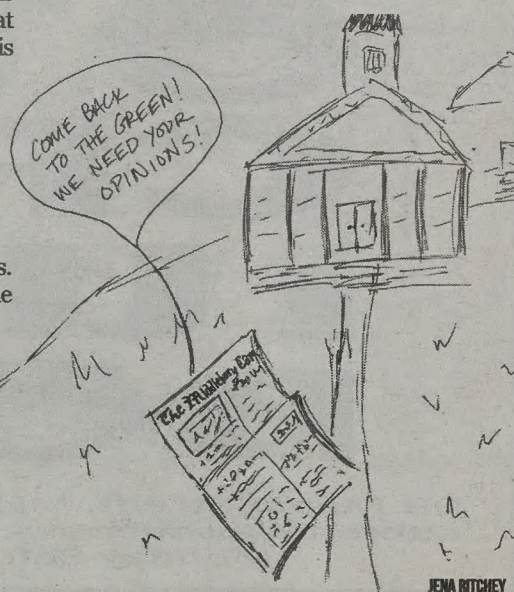 at
is
COME BACK
TO THE GREEN!
WE NEED YOUR
OPINIONS!
s.
e
The Middlebury Cam
JENA RITCHEY